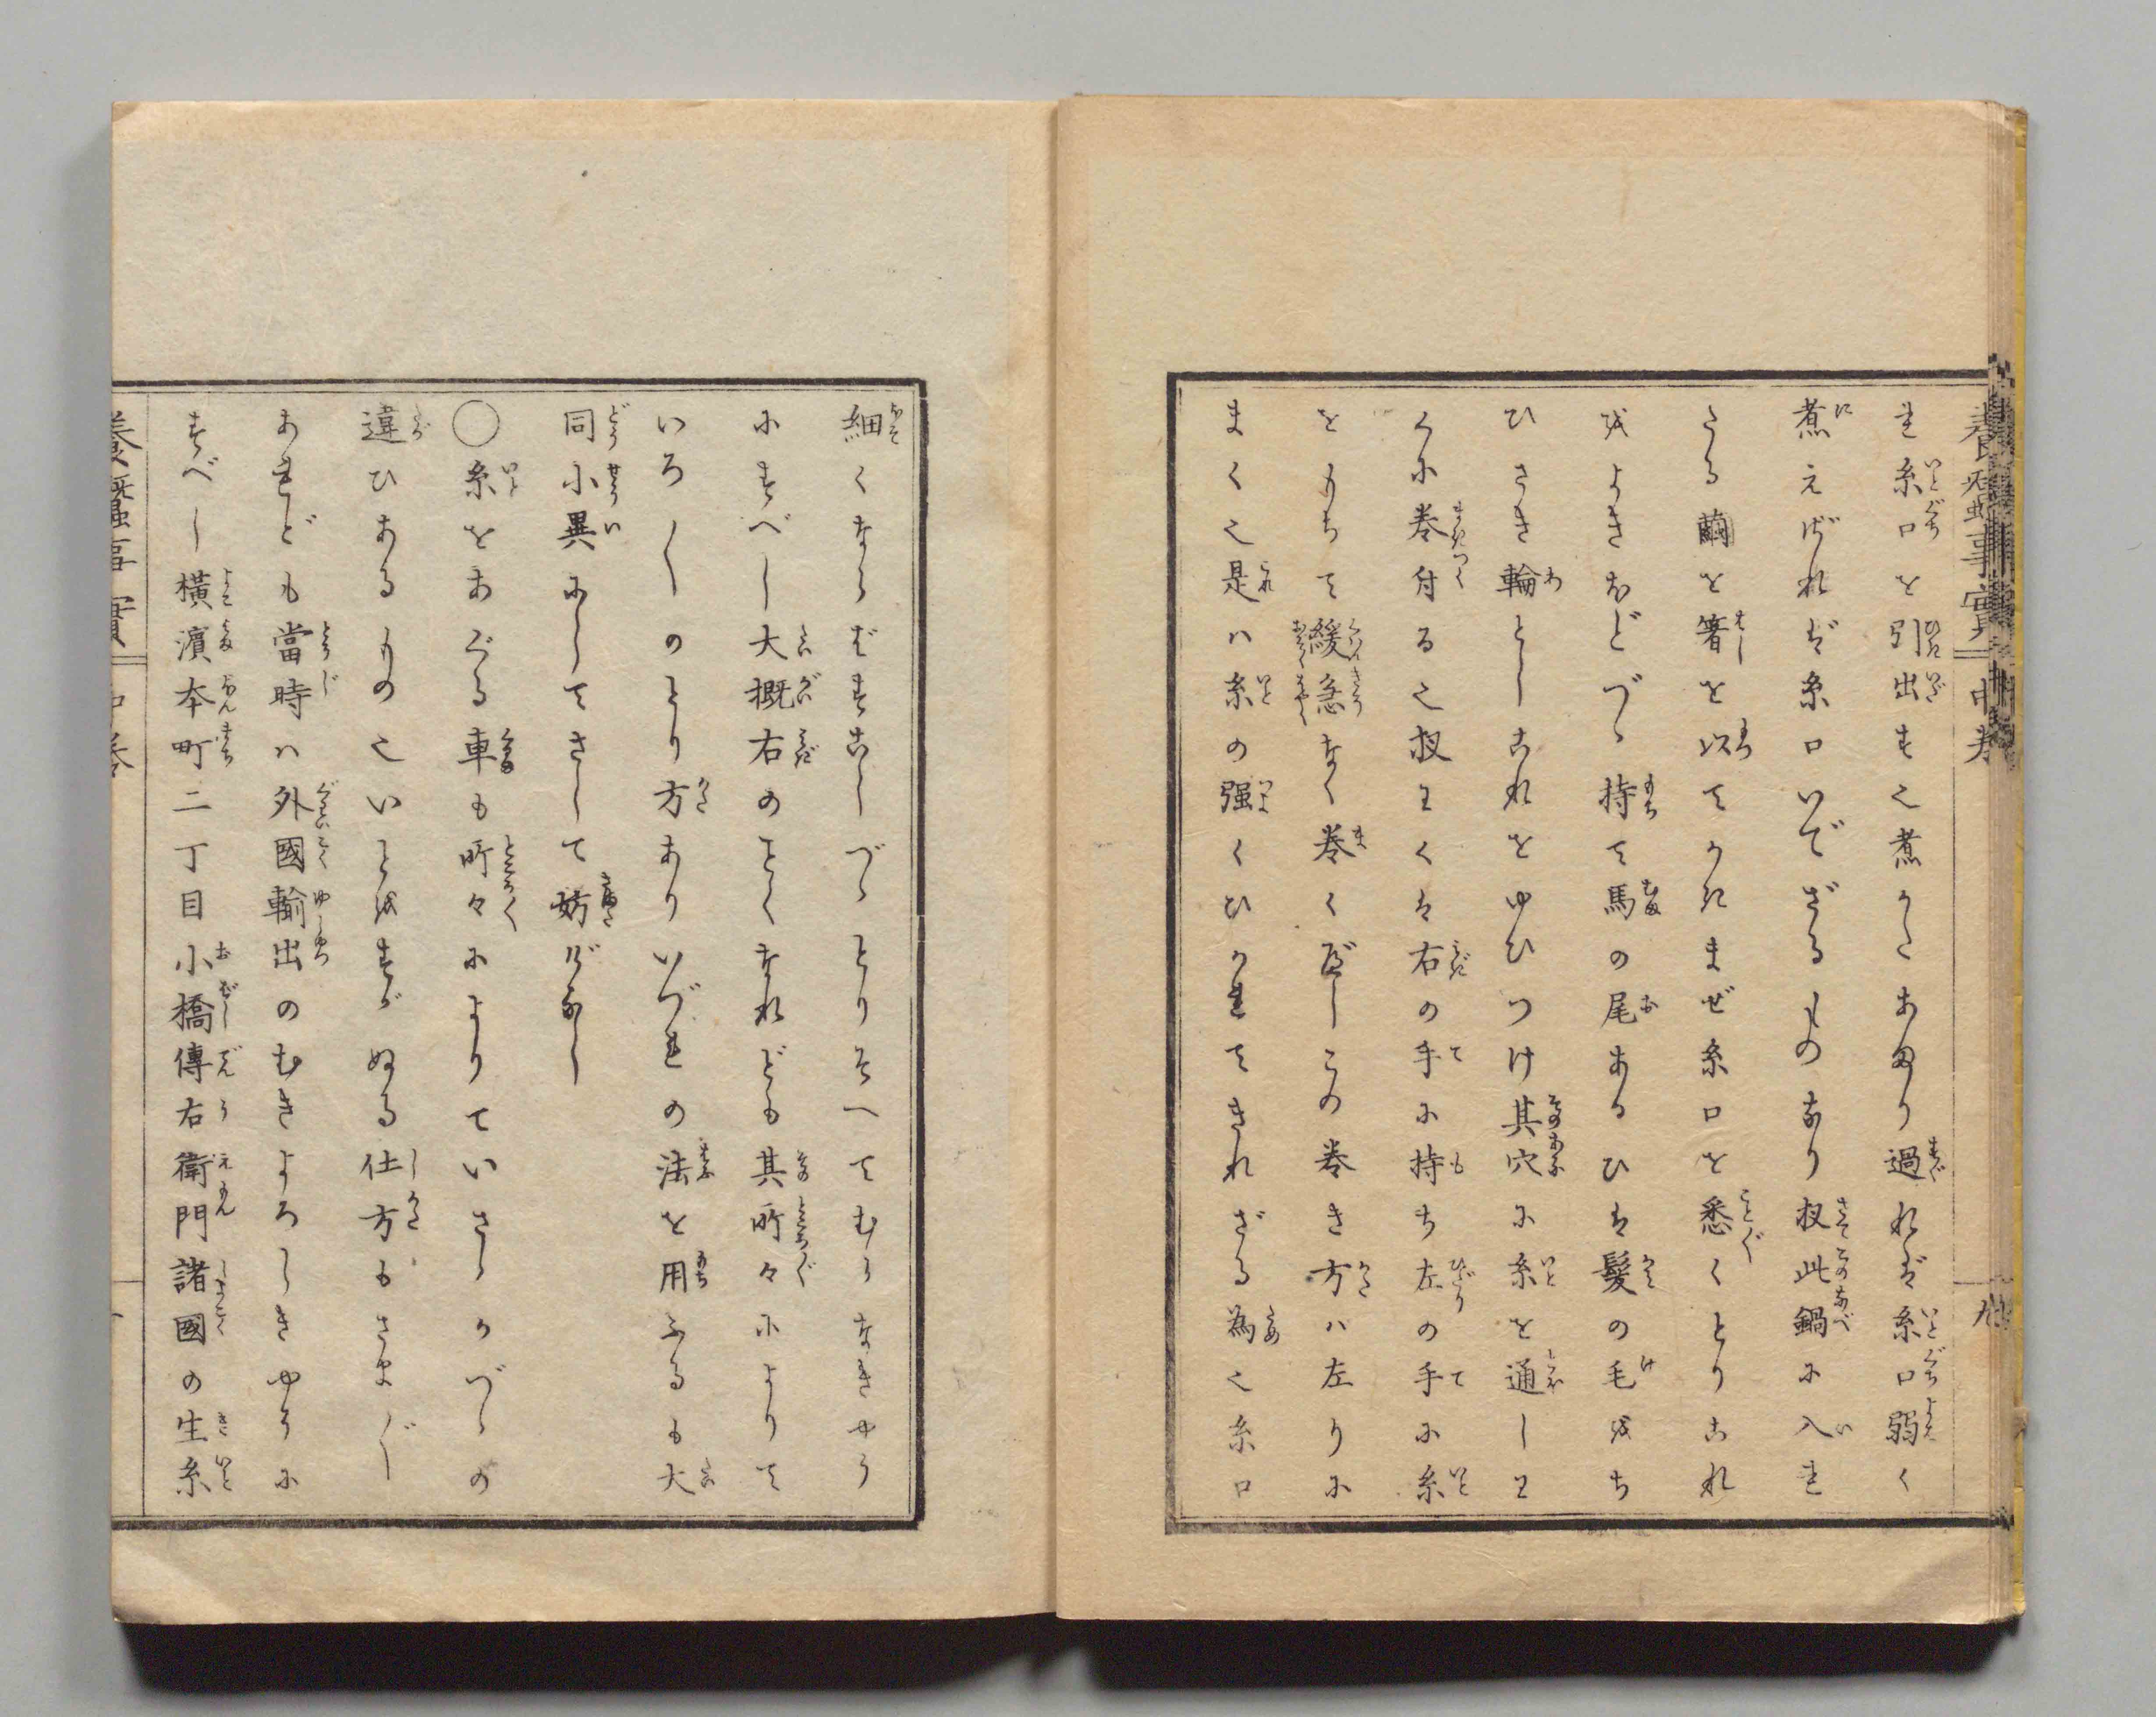 養蠶事實 中卷 九
れ糸口を引出す也煮かたあまり過れば糸口弱く
煮えざれば糸口いでざるものなり扨此鍋に入れ
たる繭を箸を以てかきまぜ糸口を悉くとりこれ
をよきほどづゝ持て馬の尾あるひは髪の毛をち
ひさき輪としこれをゆひつけ其穴に糸を通しわ
くに巻付る也扨わくは右の手に持ち左の手に糸
をもちて緩急なく巻くべしこの巻き方ハ左りに
まく也是ハ糸の强くひかれてきれざる為也糸口
細くならばすこしづゝとりそへてむらなきやう
にすべし大概右のごとくなれども其所々によりて
いろ〳〵のとり方ありいづれの法を用ふるも大
同小異にしてさして妨げなし
○糸をあぐる車も所々によりていさゝかづゝの
違ひあるもの也いとをすがぬる仕方もさま〴〵
あれども當時ハ外國輸出のむきよろしきやうに
すべし橫濵本町二丁目小橋傳右衛門諸國の生糸
養蠶事實 中卷